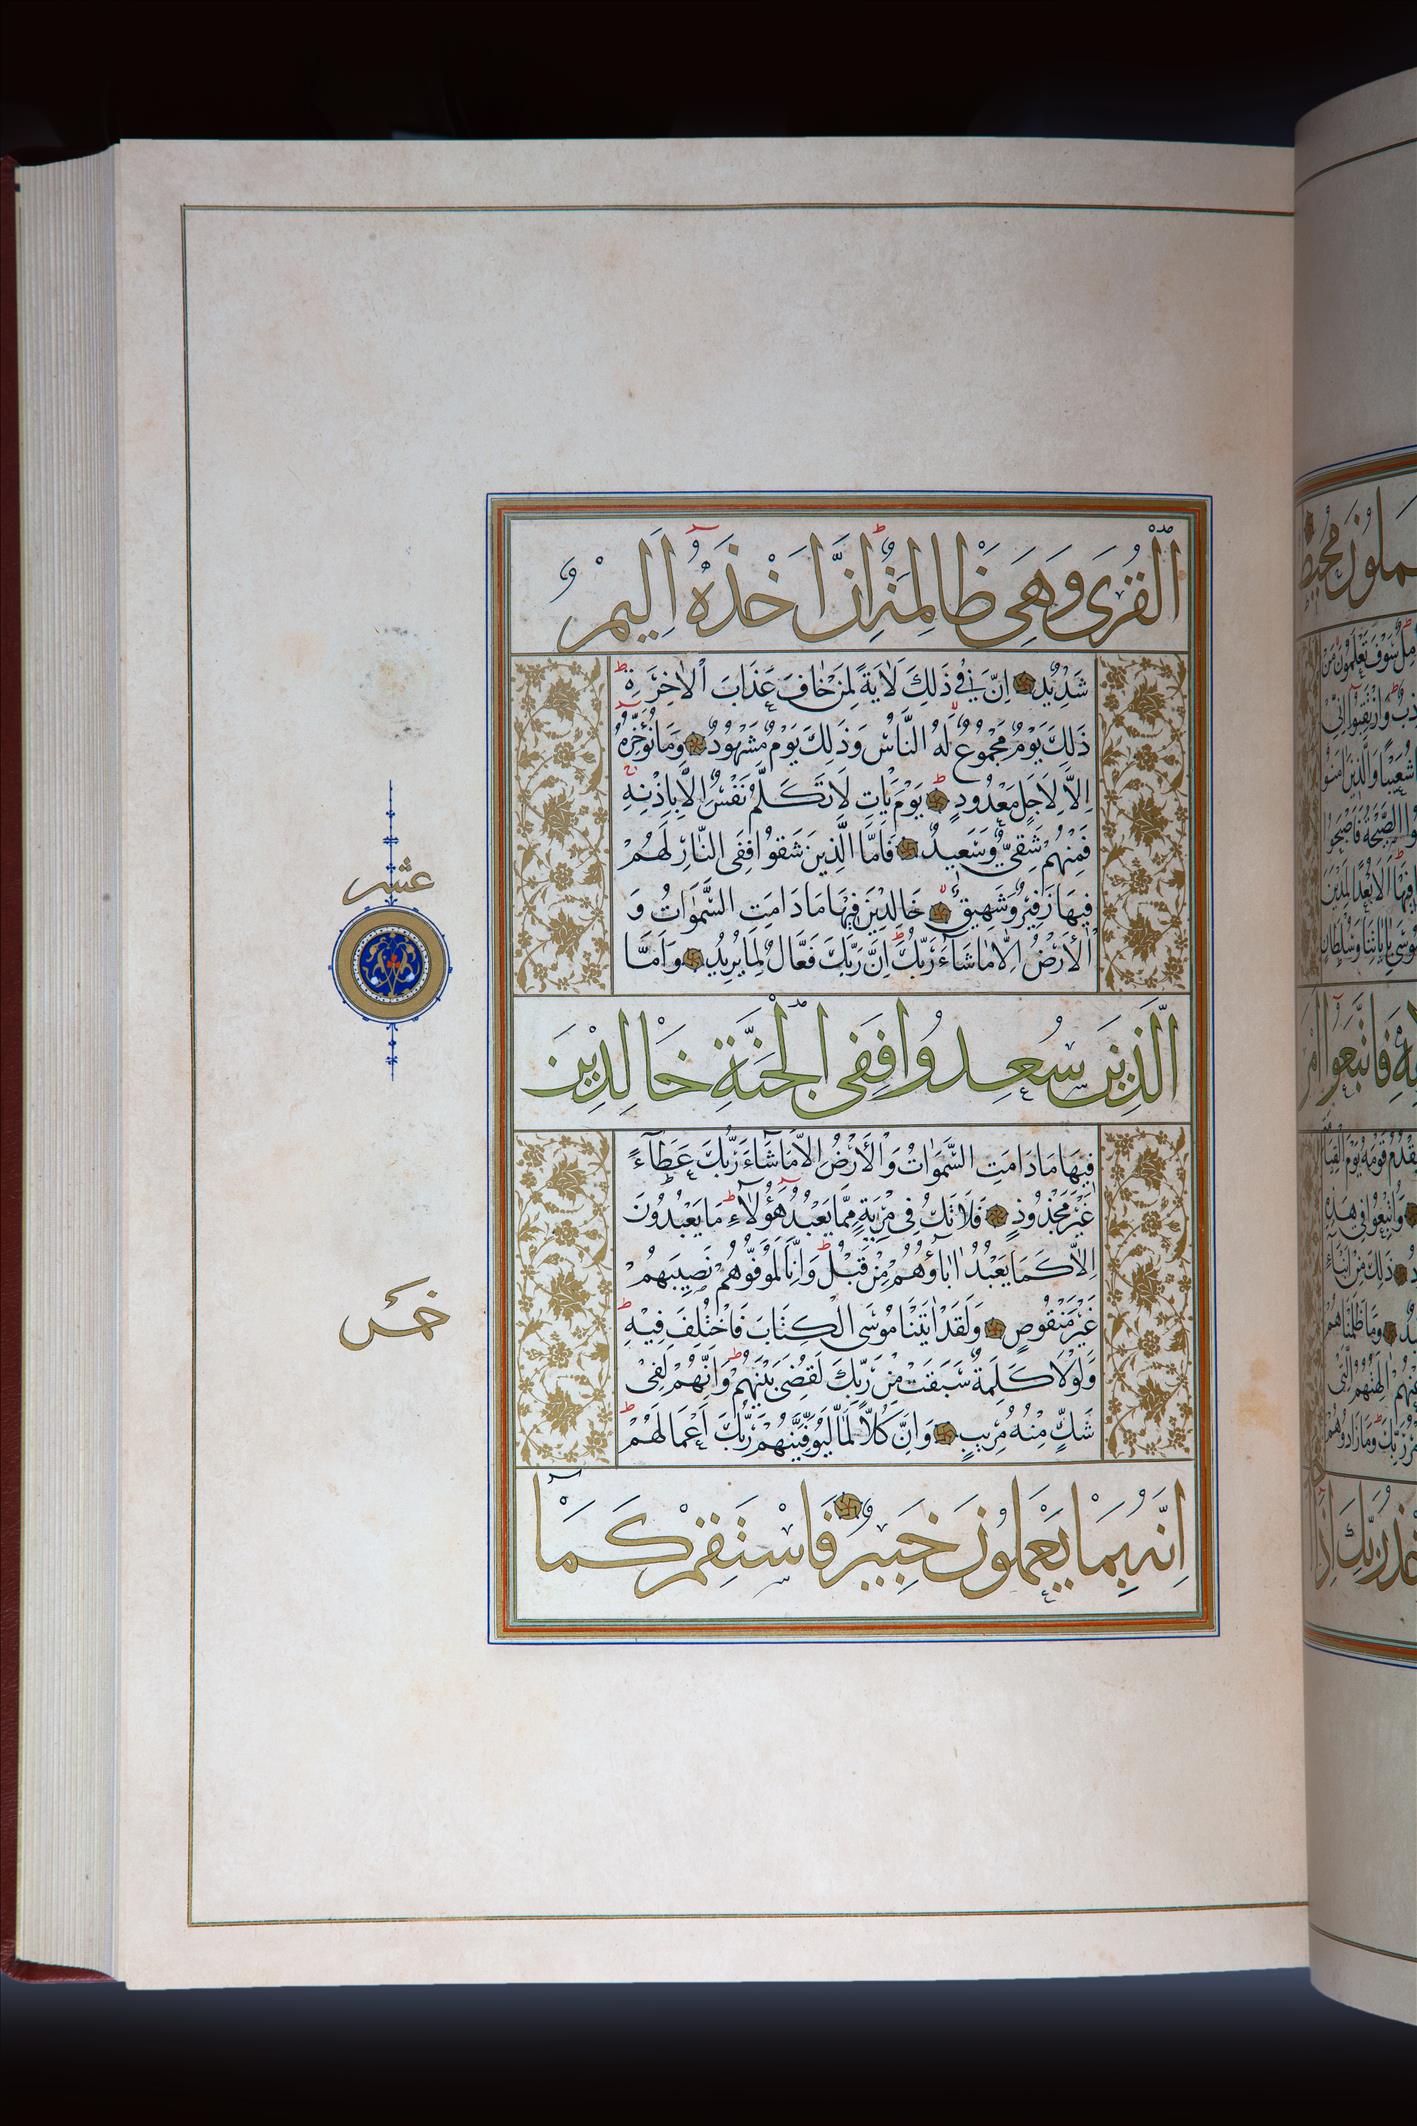 القرى وهي ظالمة ان اخذه اليم
شديد ان في ذلك لاية لمن خاف عذاب الاخرة
ذلك يوم مجموع له الناس وذلك يوم مشهود وما نؤخره
الا لاجل معدود يوم يات لا تكلم نفس الا باذنه
فمنهم شقي وسعيد فاما الذين شقوا ففى النار لهم
فيها زفير وشهيق خالدين فيها ما دامت السموات و
الارض الا ما شاء ربك ان ربك فعال لما يريد واما
الذين سعدوا ففى الجنة خالدين
فيها ما دامت السموات والارض الا ما شاء ربك عطاء
غير مجذوذ فلا تك في مرية مما يعبد هؤلاء ما يعبدون
الا كما يعبد اباؤهم من قبل وانا لموفوهم نصيبهم
غير منقوص ولقد اتينا موسى الكتاب فاختلف فيه
ولولا كلمة سبقت من ربك لقضى بينهم وانهم لفى
شك منه مريب وان كلا لما ليوفينهم ربك اعمالهم
انه بما يعملون خبير فاستقم كما
عشر
خمس